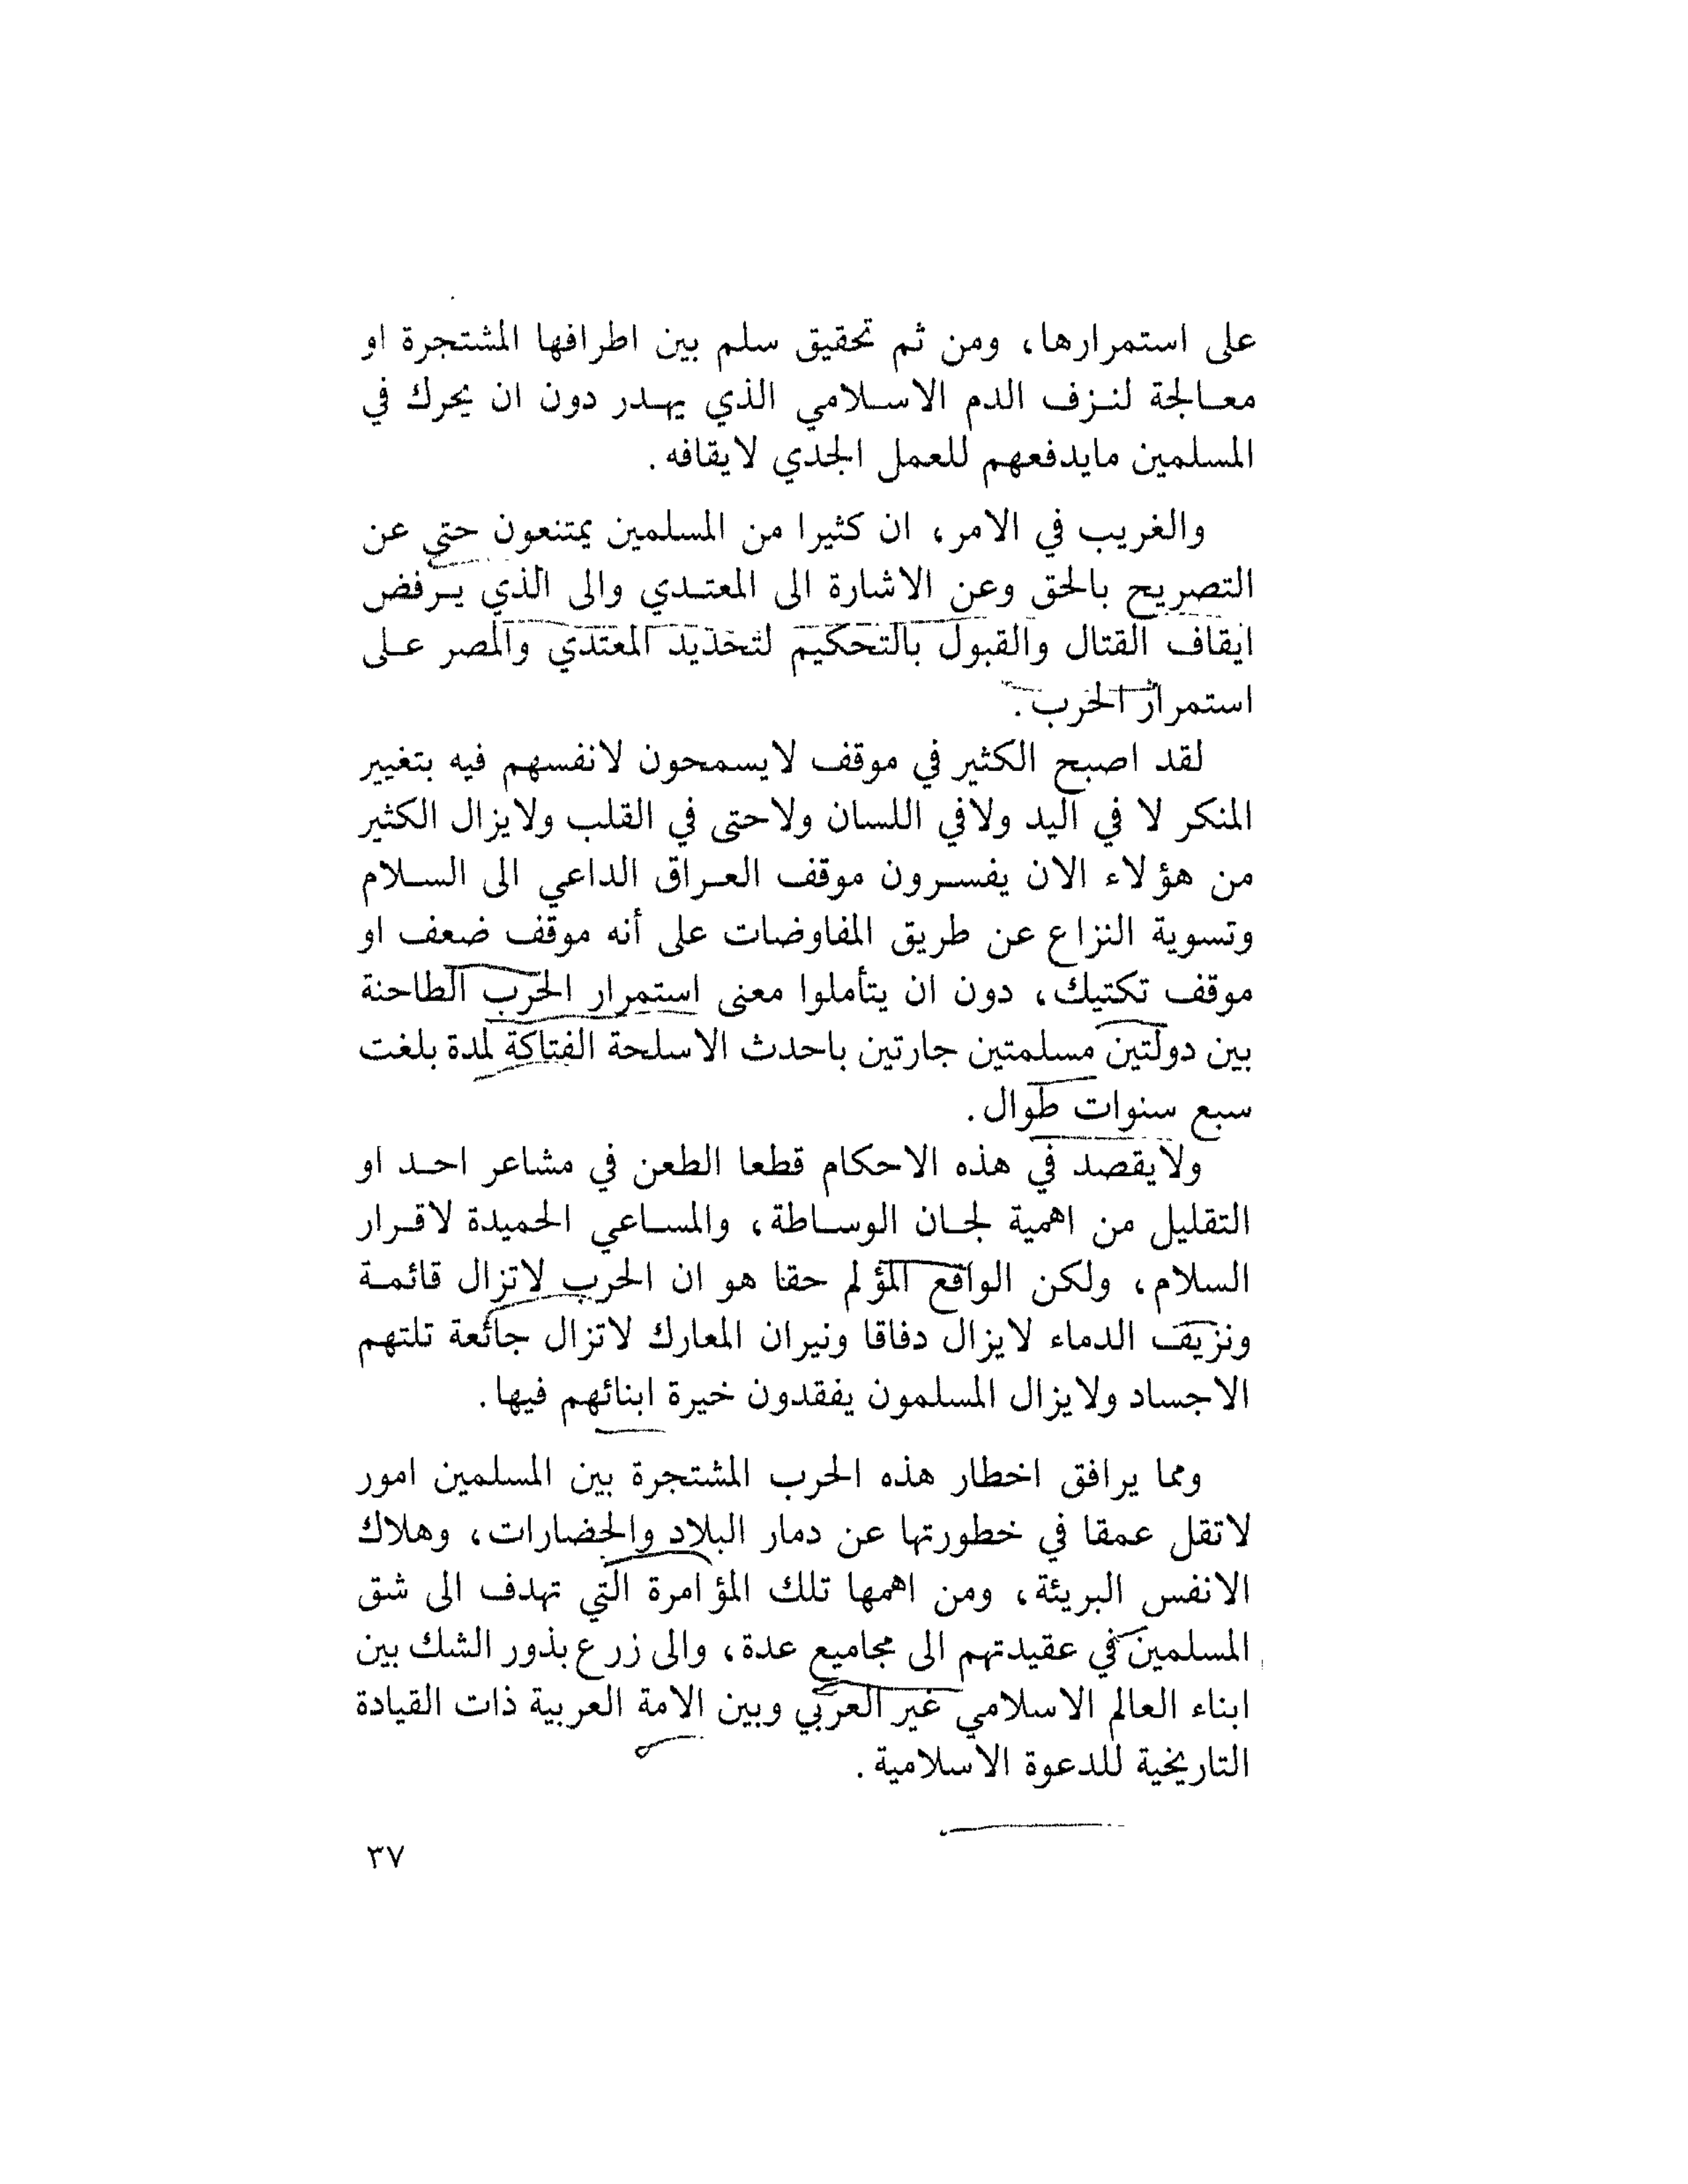 على استمرارها، ومن ثم تحقيق سلم بين اطرافها المشتجرة او
معالجة لنزف الدم الاسلامي الذي يهدر دون ان يحرك في
المسلمين مايدفعهم للعمل الجدي لايقافه.
والغريب في الامر، ان كثيرا من المسلمين يمتنعون حتى عن
التصريح بالحق وعن الاشارة الى المعتدي والى الذي يرفض
ايقاف القتال والقبول بالتحكيم لتحديد المعتدي والمصر على
استمرار الحرب.
لقد اصبح الكثير في موقف لايسمحون لانفسهم فيه بتغيير
المنكر لا في اليد ولافي اللسان ولاحتى في القلب ولايزال الكثير
من هؤلاء الان يفسرون موقف العراق الداعي الى السلام
وتسوية النزاع عن طريق المفاوضات على أنه موقف ضعف او
موقف تكتيك، دون ان يتأملوا معنى استمرار الحرب الطاحنة
بين دولتين مسلمتين جارتين باحدث الاسلحة الفتاكة لمدة بلغت
سبع سنوات طوال.
ولايقصد في هذه الاحكام قطعا الطعن في مشاعر احد او
التقليل من اهمية لجان الوساطة، والمساعي الحميدة لاقرار
السلام، ولكن الواقع المؤلم حقا هو ان الحرب لاتزال قائمة
ونزيف الدماء لايزال دفاقا ونيران المعارك لاتزال جائعة تلتهم
الاجساد ولايزال المسلمون يفقدون خيرة ابنائهم فيها.
ومما يرافق اخطار هذه الحرب المشتجرة بين المسلمين امور
لاتقل عمقا في خطورتها عن دمار البلاد والحضارات، وهلاك
الانفس البريئة، ومن اهمها تلك المؤامرة التي تهدف الى شق
المسلمين في عقيدتهم الى مجاميع عدة، والى زرع بذور الشك بين
ابناء العالم الاسلامي غير العربي وبين الامة العربية ذات القيادة
التاريخية للدعوة الاسلامية.
٣٧